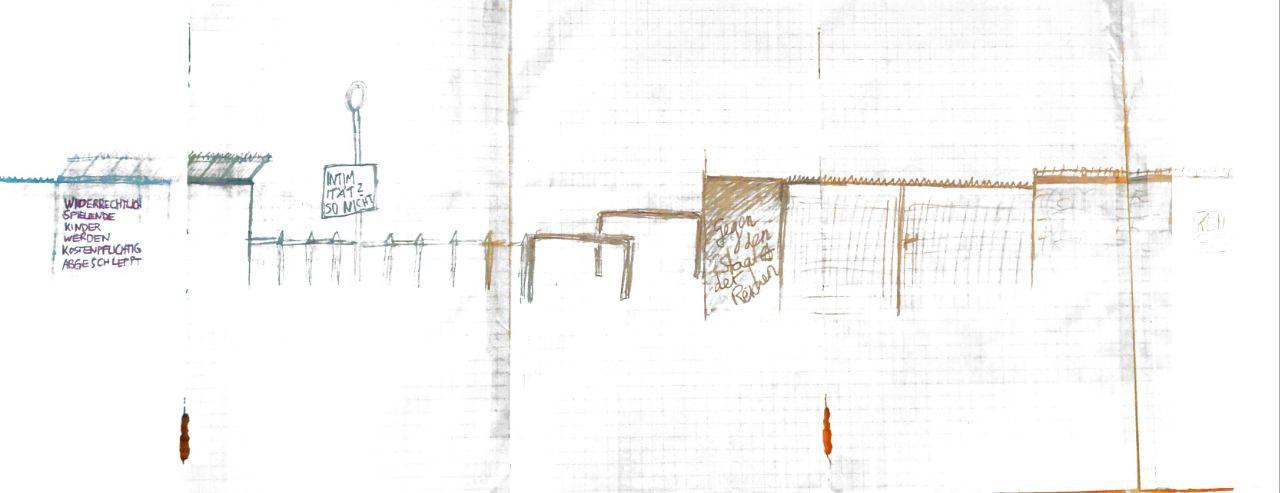 WIDERRECHTLICH
SPIELENDE
KINDER
WERDEN
KOSTENPFLICHTIG
ABGESCHLEPPT
INTIM
ITÄT?
SO NICHT
Gegen
den
Staat
der
Reichen